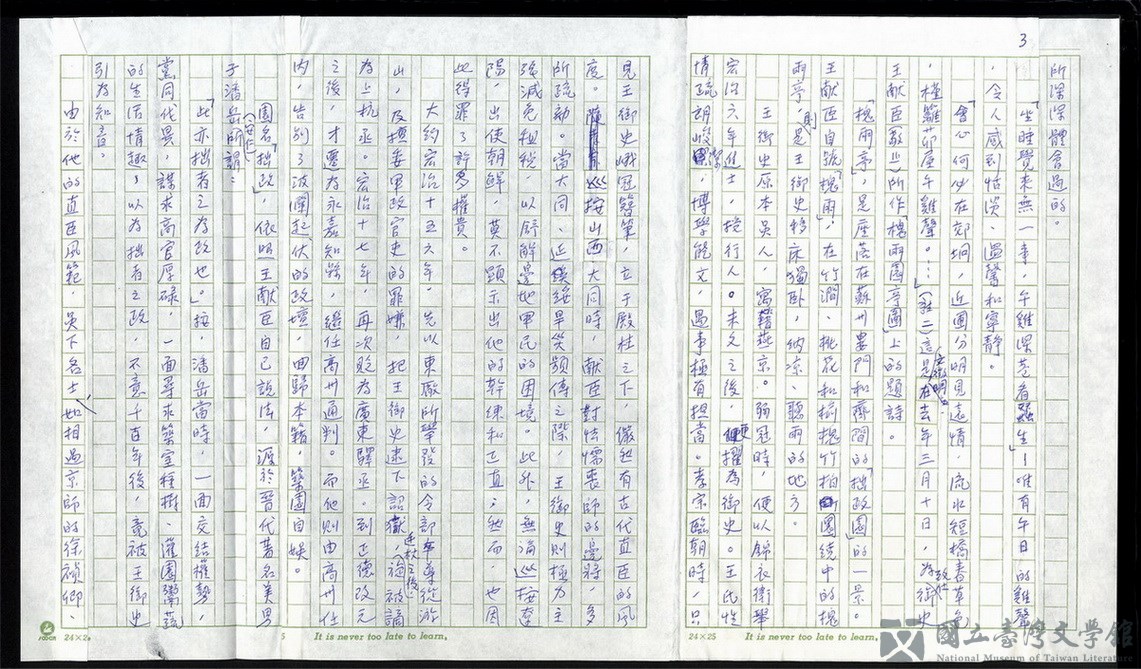 3
所深深體會過的。
「坐睡覺來無一事，午雞深巷看蠶生」！唯有午日的雞聲
，令人感到恬淡、溫馨和寧靜。
「會心何必在郊坰，近圃分明見遠情，流水短橋春草色
，槿籬茆屋午雞聲。…」(註二)這是文徵明在去年三月十日，為致仕御史
王獻臣(敬止)所作「槐雨園亭圖」上的題詩。
「槐雨亭」，是座落在蘇州婁門和齊門間的「拙政園」的一景。
王獻臣自號「槐雨」；在竹澗、桃花和榆槐竹柏圍繞中的槐
雨亭，則是王御史移床獨臥，納凉、聽雨的地方。
王御史原本吳人，寓籍燕京。弱冠時，便以錦衣衛舉
宏治六年進士，授行人。未久之後，便擢為御史。王氏性
情疏朗峻潔，博學能文，遇事極有担當。孝宗臨朝時，只
見王御史峨冠簪筆，立于殿柱之下，儼然有古代直臣的風
度。巡按山西大同時，獻臣對怯懦喪師的邊將，多
所疏劾。當大同、延綏旱災頻傳之際，王御史則極力主
張減免租稅，以舒解邊地軍民的困境。此外，無論巡按遼
陽，出使朝鮮，莫不顯示出他的幹練和正直；然而，也因
此得罪了許多權貴。
大約宏治十五六年，先以東廠所舉發的令部卒導從游
山，及擅委軍政官吏的罪嫌，把王御史逮下詔獄，廷杖之後，被謫
為上杭丞。宏治十七年，再次貶為廣東驛丞。到正德改元
之後，才遷為永嘉知縣，繼任高州通判。而他則由高州任
內，告別了波闌起伏的政壇，回歸本籍，築園自娛。
園名「拙政」，依照王獻臣自己說法，源於晉代著名美男
子潘岳(安仁)所謂：
「此亦拙者之為政也。」按，潘岳當時，一面交結權勢，
黨同伐異，謀求高官厚祿，一面尋求築室種樹、灌園鬻蔬
的生活情趣，以為拙者之政，不意千百年後，竟被王御史
引為知音。
由於他的直臣風範，吳下名士，如相過京師的徐禎卿、
24×25
It is never too late to learn.
24×25
It is never too late to learn.
國立臺灣文學館
National Museum of Taiwan Literature